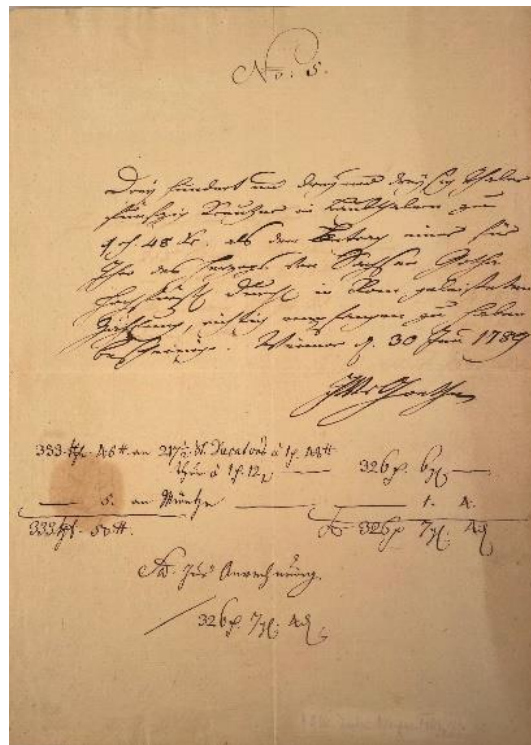 No: 5.
Drey hundert und drey und dreysig Thaler
funfzig Kreuzer in Laubthalern zu
1 rh 48 Xr. als den Betrag einer für
Ihro des Herzogs von Sachsen Gotha
Hochfürstl Durchl in Rom geleisteten
Zahlung, richtig empfangen zu haben
bescheinige. Weimar d. 30 1789
JWvGoethe
333 46 an 217½ à 1 48
à 1 12 — 326 6 —
— 5. an Müntze — — 1. 4.
333 50 326 7 4
zur Anrechnung.
326 7 4